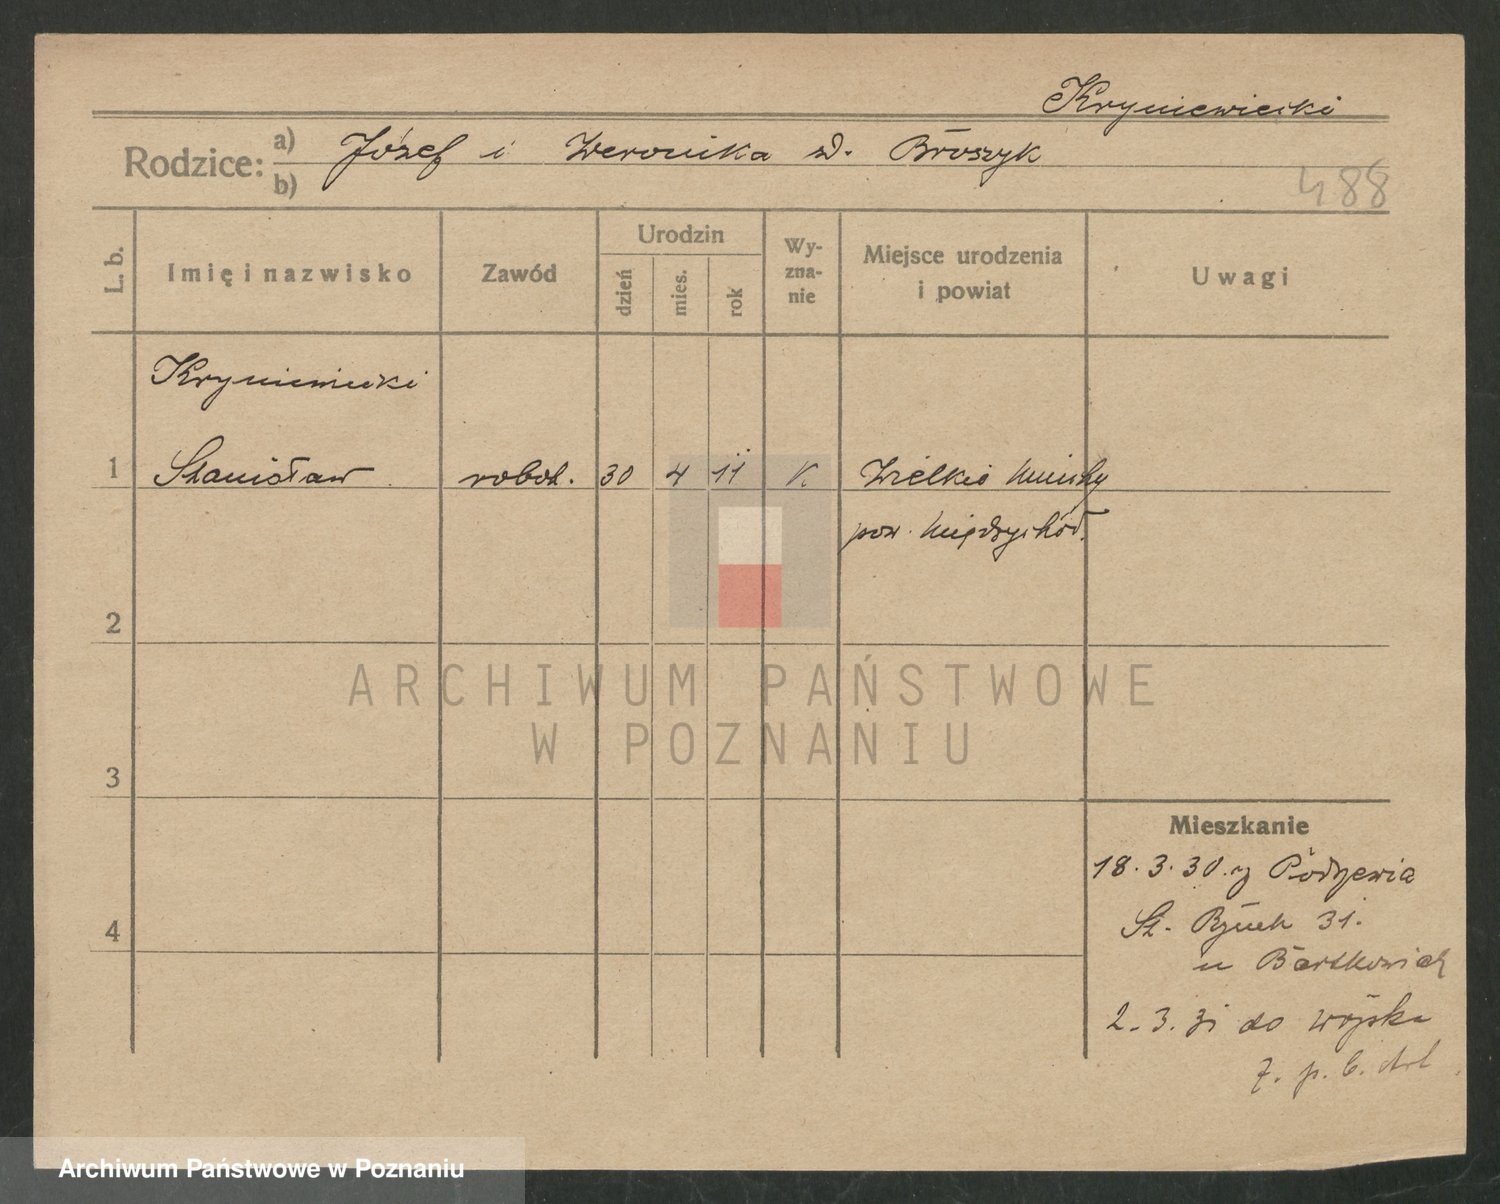 Kryniewiecki
Rodzice: a) Józef i Weronika z d. Broszyk
b)
488
L. b.
Imię i nazwisko
Zawód
Urodzin
dzień
mies.
rok
Wy-
zna-
nie
Miejsce urodzenia
i powiat
Uwagi
Kryniewiecki
1 Stanisław robot. 30 4 11 k. Wielkie
pow. Międzychód.
2
3
4
ARCHIWUM PAŃSTWOWE
W POZNANIU
Mieszkanie
18.3.30. z
St. Rynek 31.
u Bartkowiak
2.3.31 do wojska
7. p. b.
Archiwum Państwowe w Poznaniu